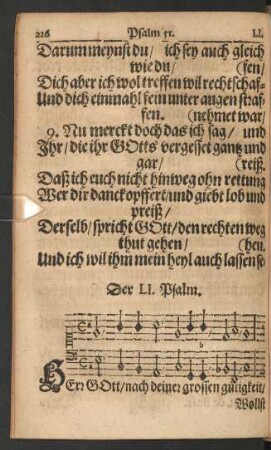 226 Psalm 51. LI.
Darum meynst du/ ich sey auch gleich
wie du/ (sen/
Dich aber ich wol treffen wil rechtschaf-
Und dich einmahl fein unter augen straf-
fen. (nehmet war/
9. Nu merckt doch das ich sag/ und
Ihr/ die ihr GOtts vergesset gantz und
gar/ (reiß.
Daß ich euch nicht hinweg ohn rettung
Wer dir danck opffert/ und giebt lob und
preiß/
Derselb/ spricht GOtt/ den rechten weg
thut gehen/ (hen.
Und ich wil ihm mein heyl auch lassen se-
Der LI. Psalm.
HErr GOtt/ nach deiner grossen gütigkeit/
Wollst